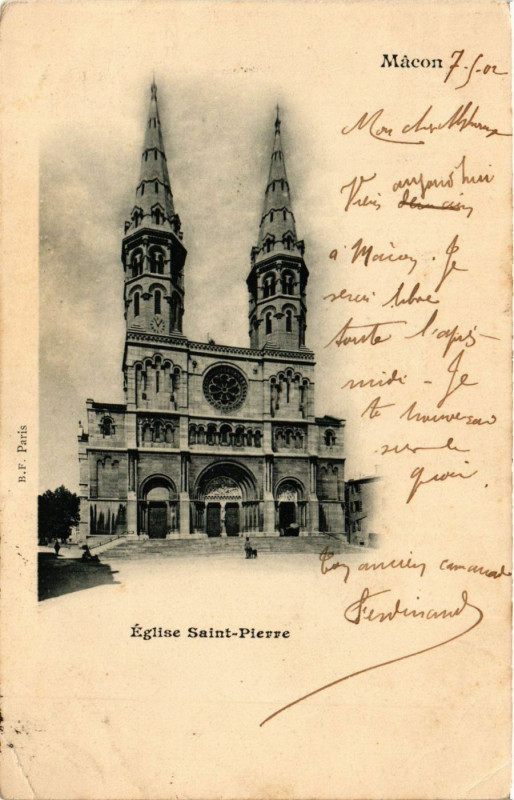 Mâcon 7-5-02
Mon cher Alphonse
Viens aujourd'hui
à Mâcon. Je
serai libre
toute l'après-
midi - Je
te trouverai
sur le
quai.
Ton ancien camarade
Ferdinand
B.F. Paris
Église Saint-Pierre